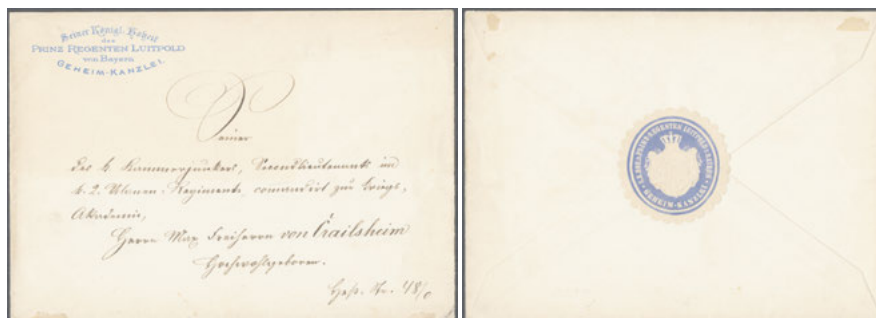 Seiner Königl. Hoheit
des
PRINZ REGENTEN LUITPOLD
von Bayern
GEHEIM-KANZLEI.
Seiner
des k. Kammerjunkers, Secondlieutenants im
k. 2. Ulanen-Regimente, comandirt zur Kriegs-
Akademie,
Herrn Max Freiherrn von Crailsheim
Hochwohlgeboren.
PRINZ-REGENTEN LUITPOLD
GEHEIM-KANZLEI